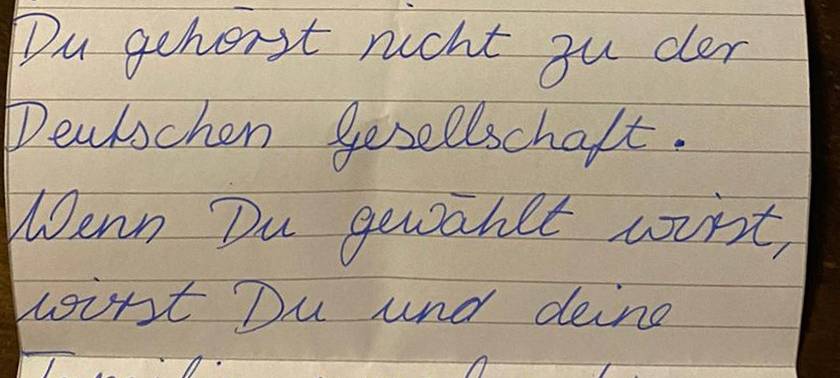 Du gehörst nicht zu der
Deutschen Gesellschaft.
Wenn Du gewählt wirst,
wirst Du und deine